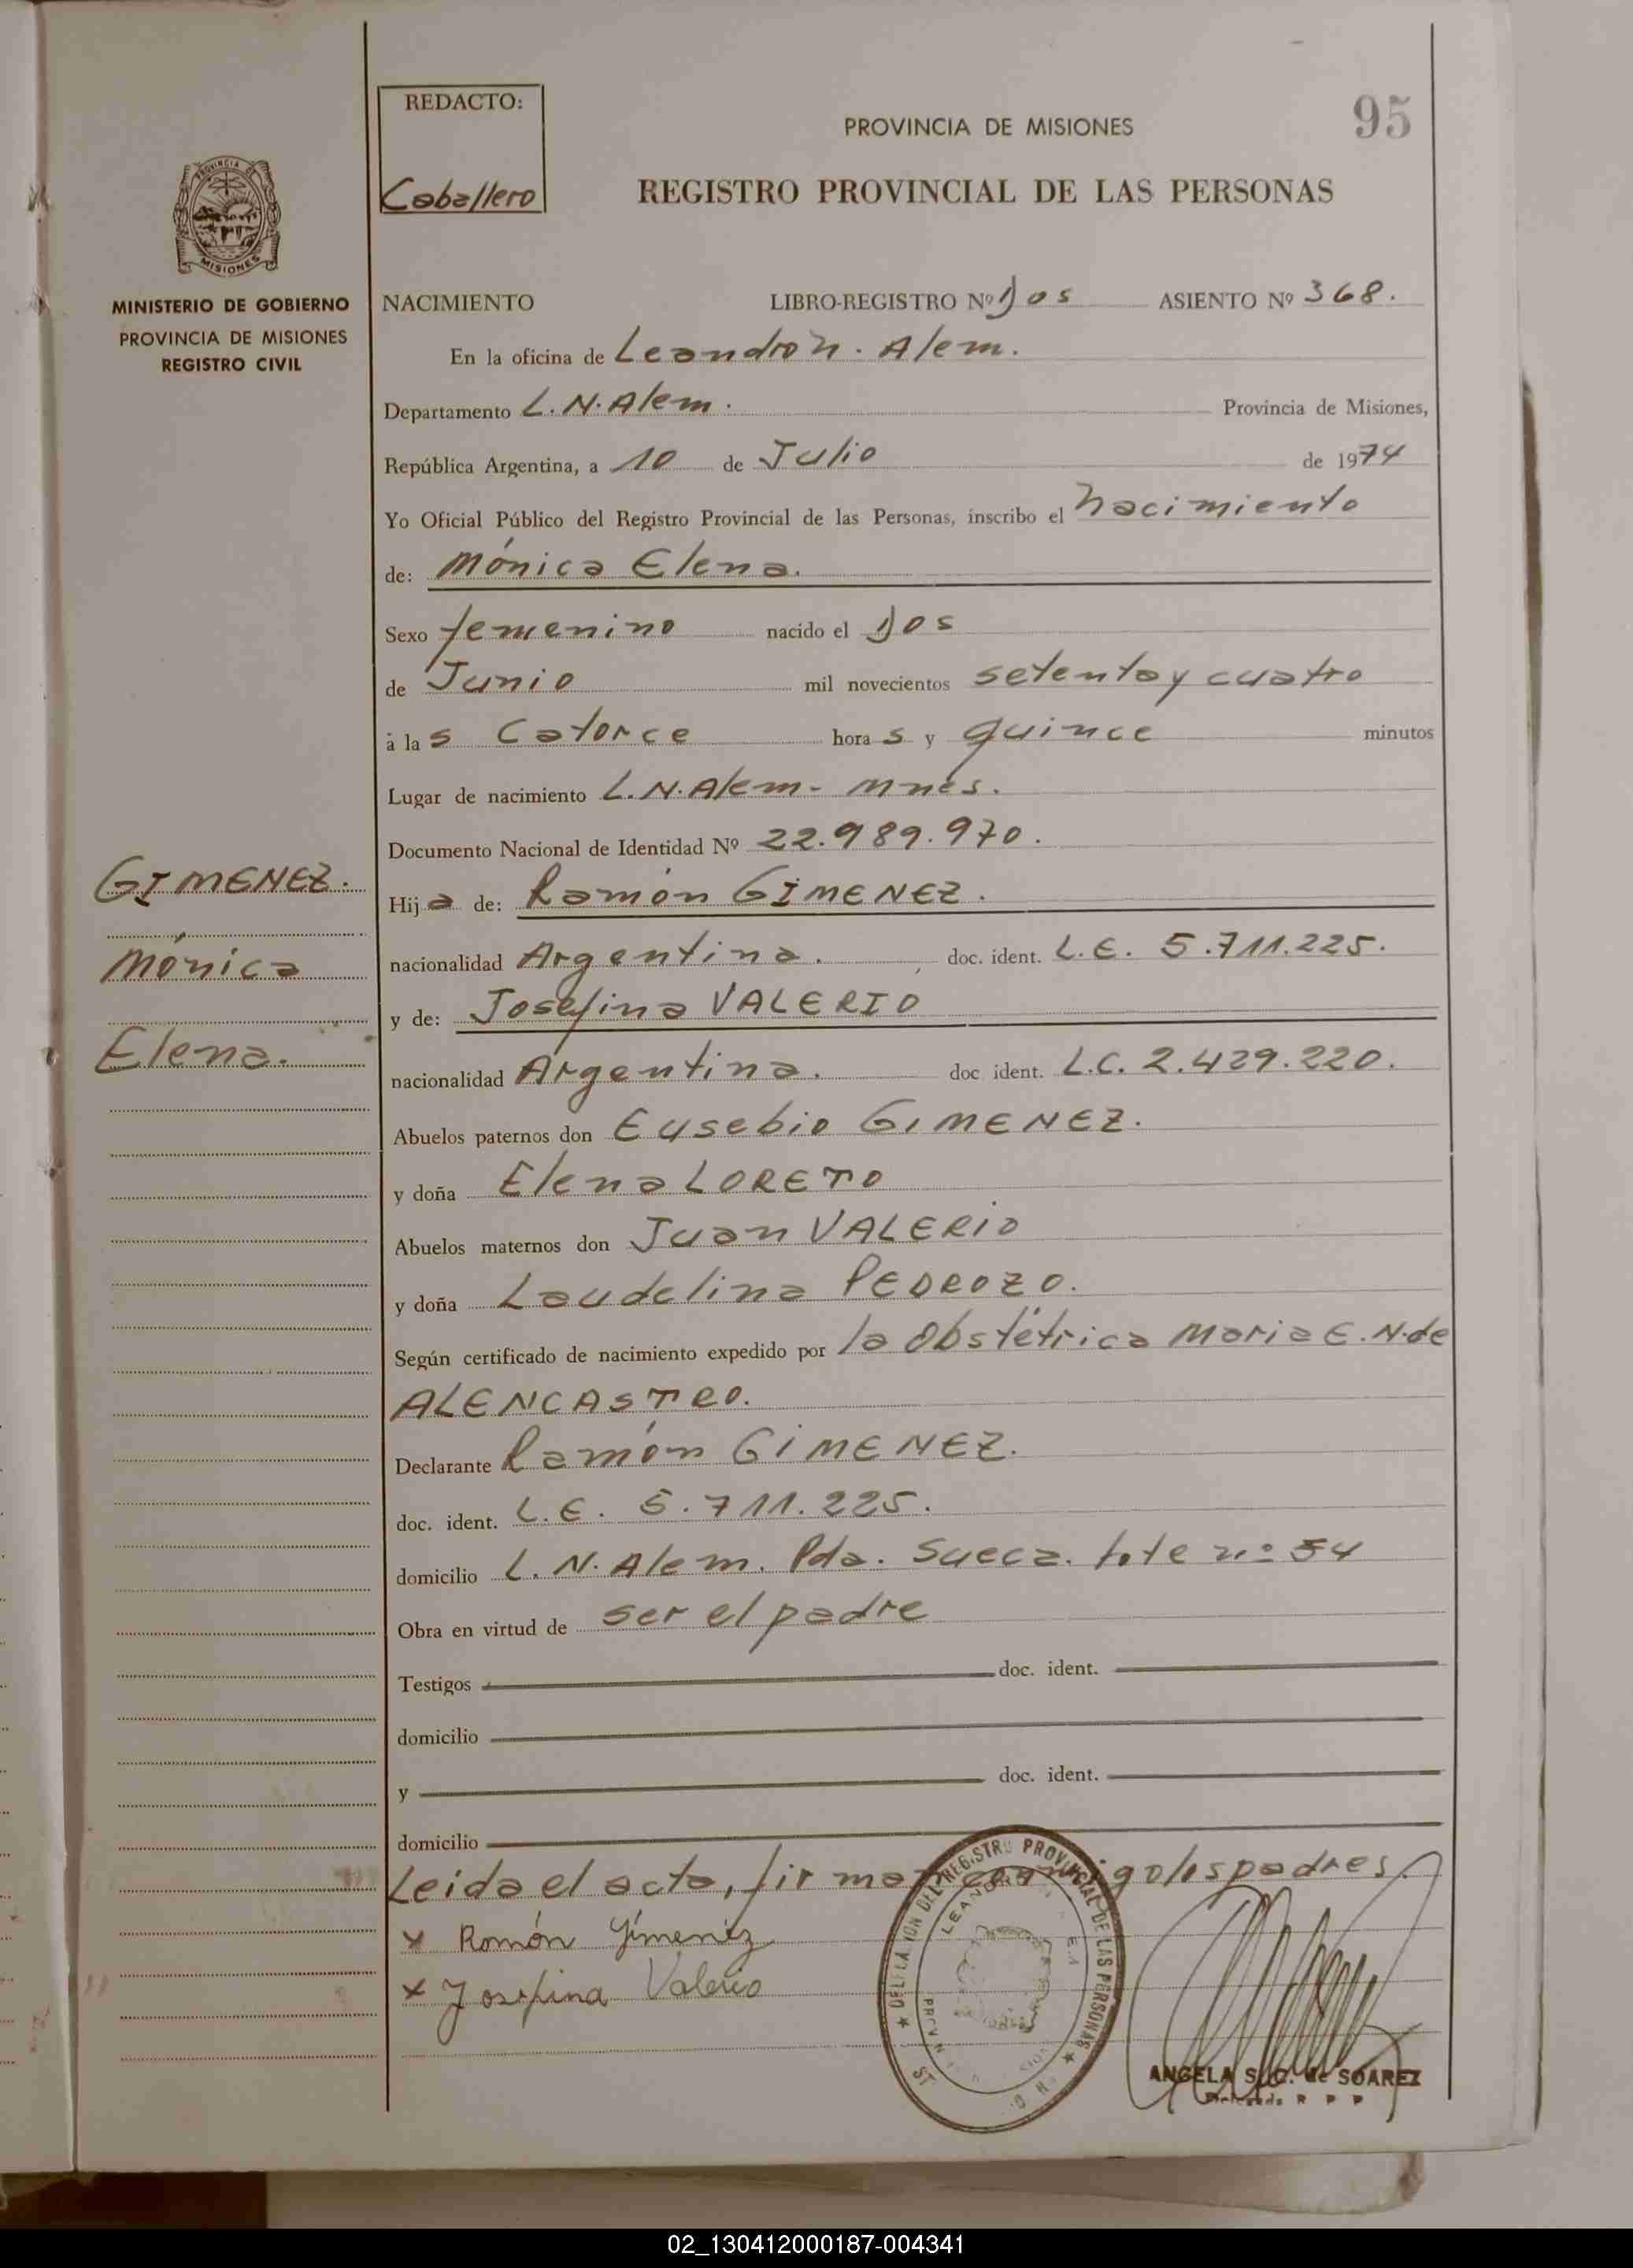 REDACTO:
Caballero
PROVINCIA DE MISIONES
95
REGISTRO PROVINCIAL DE LAS PERSONAS
PROVINCIA DE
MISIONES
MINISTERIO DE GOBIERNO
PROVINCIA DE MISIONES
REGISTRO CIVIL
NACIMIENTO LIBRO-REGISTRO Nº Dos ASIENTO Nº 368.
En la oficina de Leandro N. Alem.
Departamento L. N. Alem. Provincia de Misiones,
República Argentina, a 10 de Julio de 1974
Yo Oficial Público del Registro Provincial de las Personas, inscribo el Nacimiento
de: Mónica Elena.
Sexo femenino nacido el Dos
de Junio mil novecientos setenta y cuatro
a las Catorce horas y quince minutos
Lugar de nacimiento L. N. Alem - Mnes.
Documento Nacional de Identidad Nº 22.989.970.
GIMENEZ.
Mónica
Elena.
Hija de: Ramón GIMENEZ.
nacionalidad Argentina. , doc. ident. L.E. 5.711.225.
y de: Josefina VALERIO
nacionalidad Argentina. doc ident. L.C. 2.429.220.
Abuelos paternos don Eusebio GIMENEZ.
y doña Elena LORETO
Abuelos maternos don Juan VALERIO
y doña Laudelina PEDROZO.
Según certificado de nacimiento expedido por la Obstétrica Maria E. N. de
ALENCASTRO.
Declarante Ramón GIMENEZ.
doc. ident. L.E. 5.711.225.
domicilio L. N. Alem. Pda. Sueca. Lote nº 54
Obra en virtud de ser el padre
Testigos doc. ident.
domicilio
y doc. ident.
domicilio
Leida el acta, firman conmigo los padres.
x Ramón Gímenez
x Josefina Valerio
REGISTRO PROVINCIAL DE LAS PERSONAS
ANGELA S. C. de SOAREZ
Delegada R P P
02_130412000187-004341